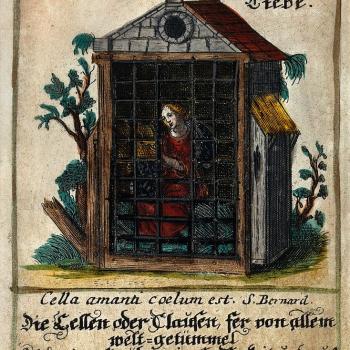 Liebe.
Cella amanti coelum est. S. Bernard.
Die Cellen oder Clausen, fer von allem
welt-getümmel